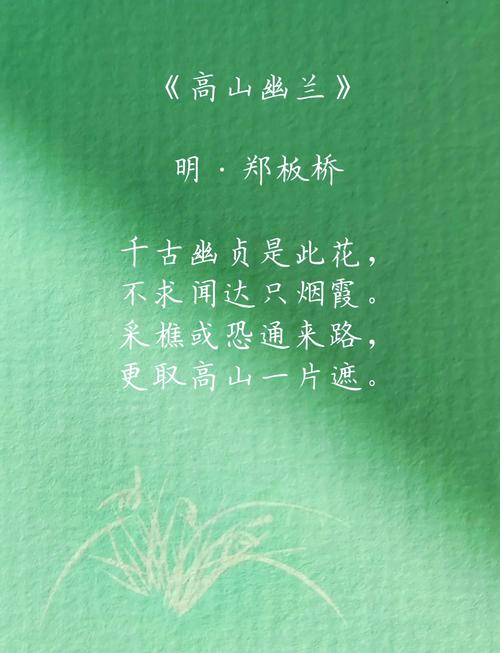 《高山幽兰》
明·郑板桥
千古幽贞是此花，
不求闻达只烟霞。
采樵或恐通来路，
更取高山一片遮。